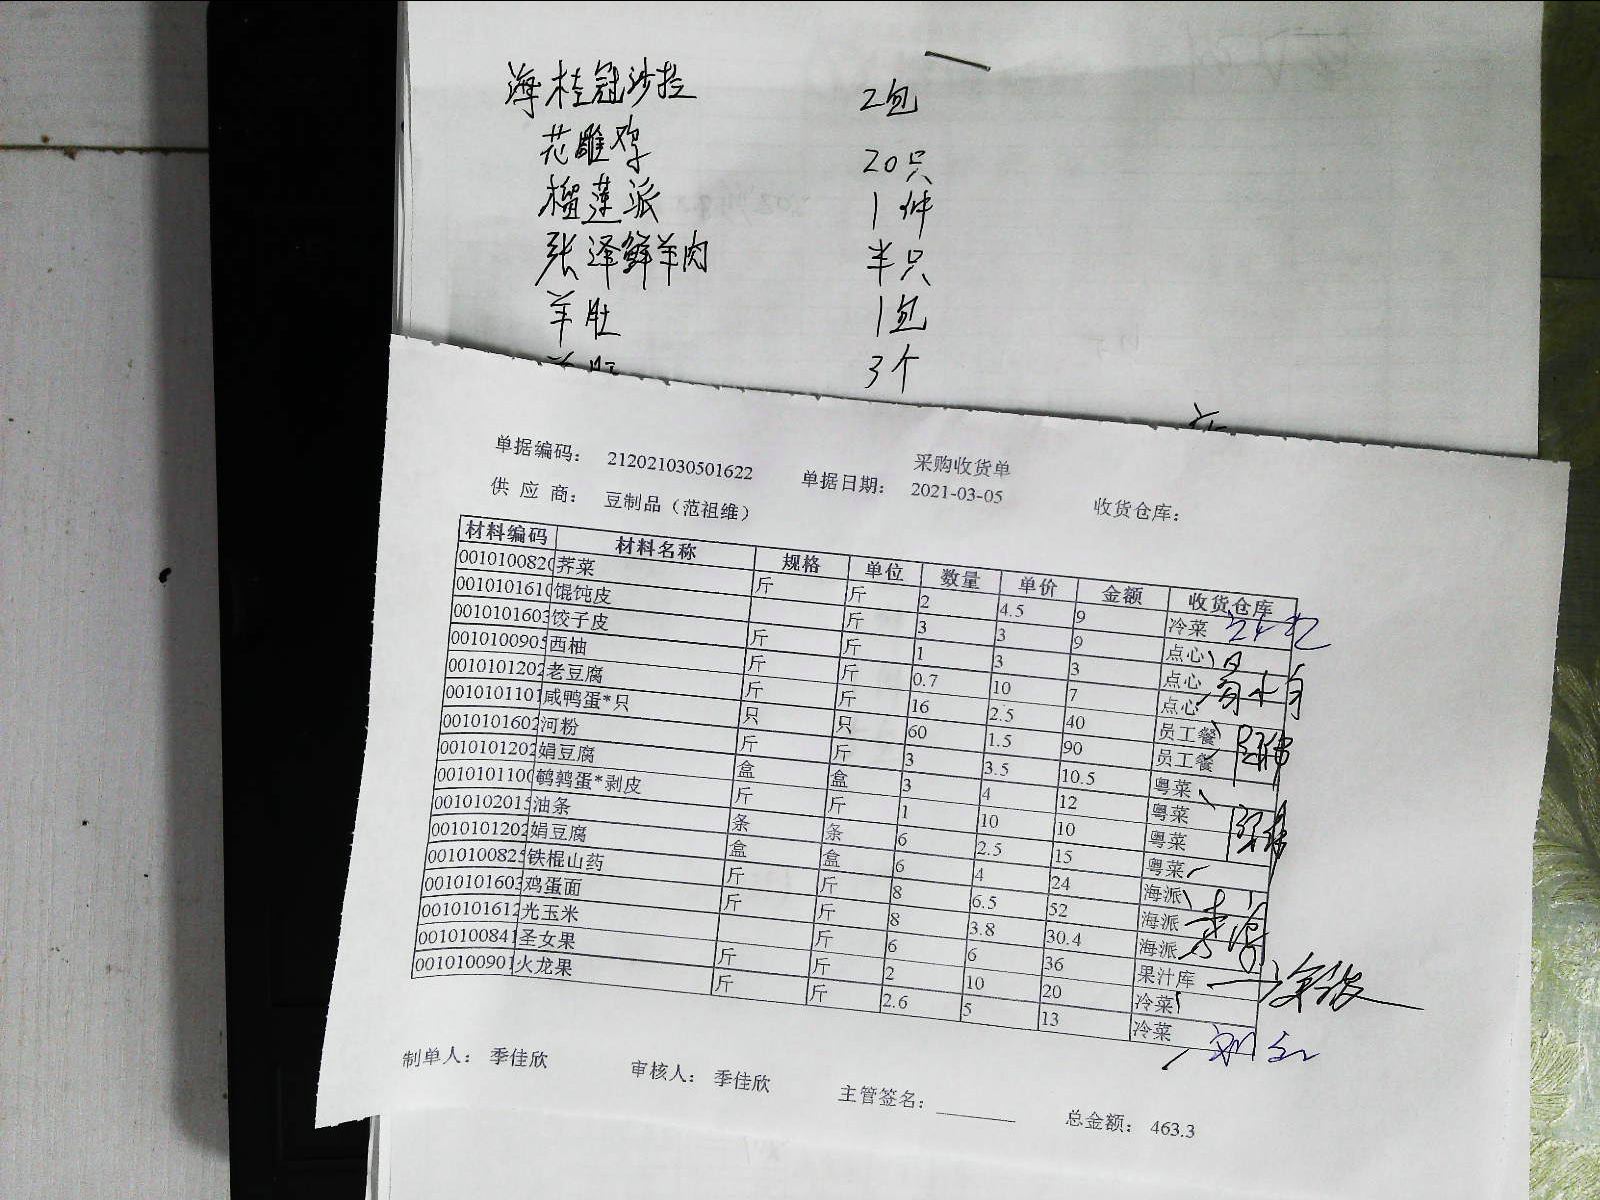 海桂冠沙拉 2包
花雕鸡 20只
榴莲派 1件
张泽鲜羊肉 半只
羊肚 1包
3个
采购收货单
单据编码： 212021030501622 单据日期： 2021-03-05 收货仓库：
供 应 商： 豆制品（范祖维）
材料编码 材料名称 规格 单位 数量 单价 金额 收货仓库
001010082 荠菜 斤 斤 2 4.5 9 冷菜
001010161 馄饨皮 斤 3 3 9 点心
001010160 饺子皮 斤 斤 1 3 3 点心
001010090 西柚 斤 斤 0.7 10 7 点心
001010120 老豆腐 斤 斤 16 2.5 40 员工餐
001010110 咸鸭蛋*只 只 只 60 1.5 90 员工餐
001010160 河粉 斤 斤 3 3.5 10.5 粤菜
001010120 娟豆腐 盒 盒 3 4 12 粤菜
001010110 鹌鹑蛋*剥皮 斤 斤 1 10 10 粤菜
001010201 油条 条 条 6 2.5 15 粤菜
001010120 娟豆腐 盒 盒 6 4 24 海派
001010082 铁棍山药 斤 斤 8 6.5 52 海派
001010160 鸡蛋面 斤 斤 8 3.8 30.4 海派
001010161 光玉米 斤 6 6 36 果汁库
001010084 圣女果 斤 斤 2 10 20 冷菜
001010090 火龙果 斤 斤 2.6 5 13 冷菜
制单人： 季佳欣 审核人： 季佳欣 主管签名： 总金额： 463.3